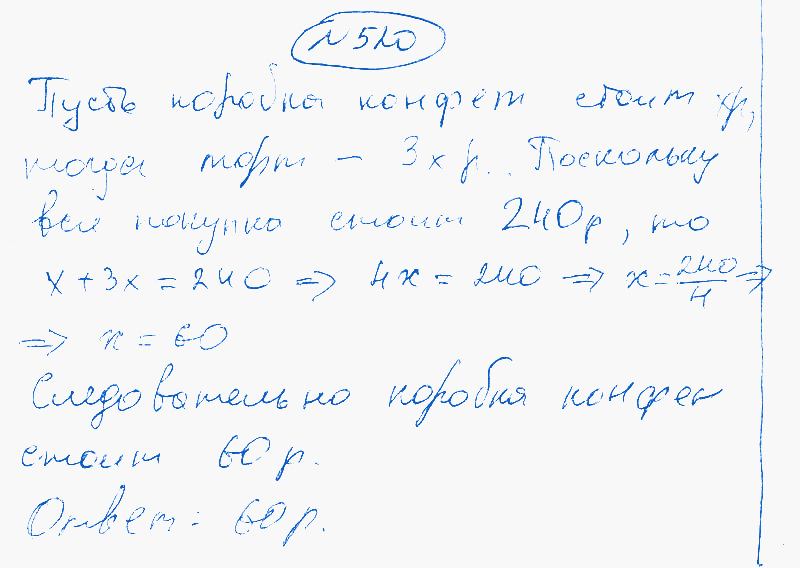 №520
Пусть коробка конфет стоит xр,
тогда торт – 3x р.. Поскольку
вся покупка стоит 240р, то
x+3x=240 => 4x=240 => x=240/4 =>
=> x=60
Следовательно коробка конфет
стоит 60р.
Ответ: 60р.